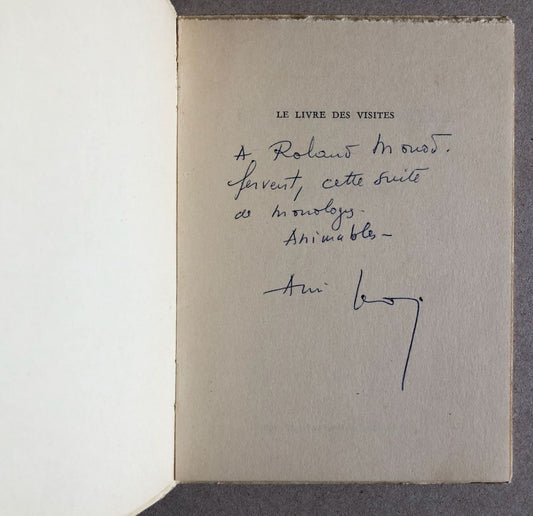 LE LIVRE DES VISITES
A Roland Monod.
fervent, cette suite
de monologues.
Animables –